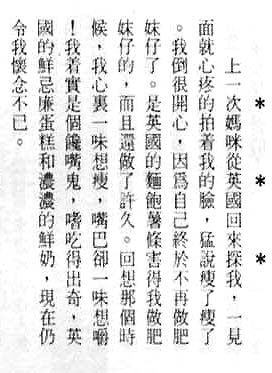 * * *
上一次媽咪從英國回來探我，一見
面就心疼的拍着我的臉，猛說瘦了瘦了
。我倒很開心，因爲自己終於不再做肥
妹仔了。是英國的麵飽薯條害得我做肥
妹仔的，而且還做了許久。回想那個時
候，我心裏一味想瘦，嘴巴卻一味想嚼
！我着實是個饞嘴鬼，嗜吃得出奇，英
國的鮮忌廉蛋糕和濃濃的鮮奶，現在仍
令我懷念不已。